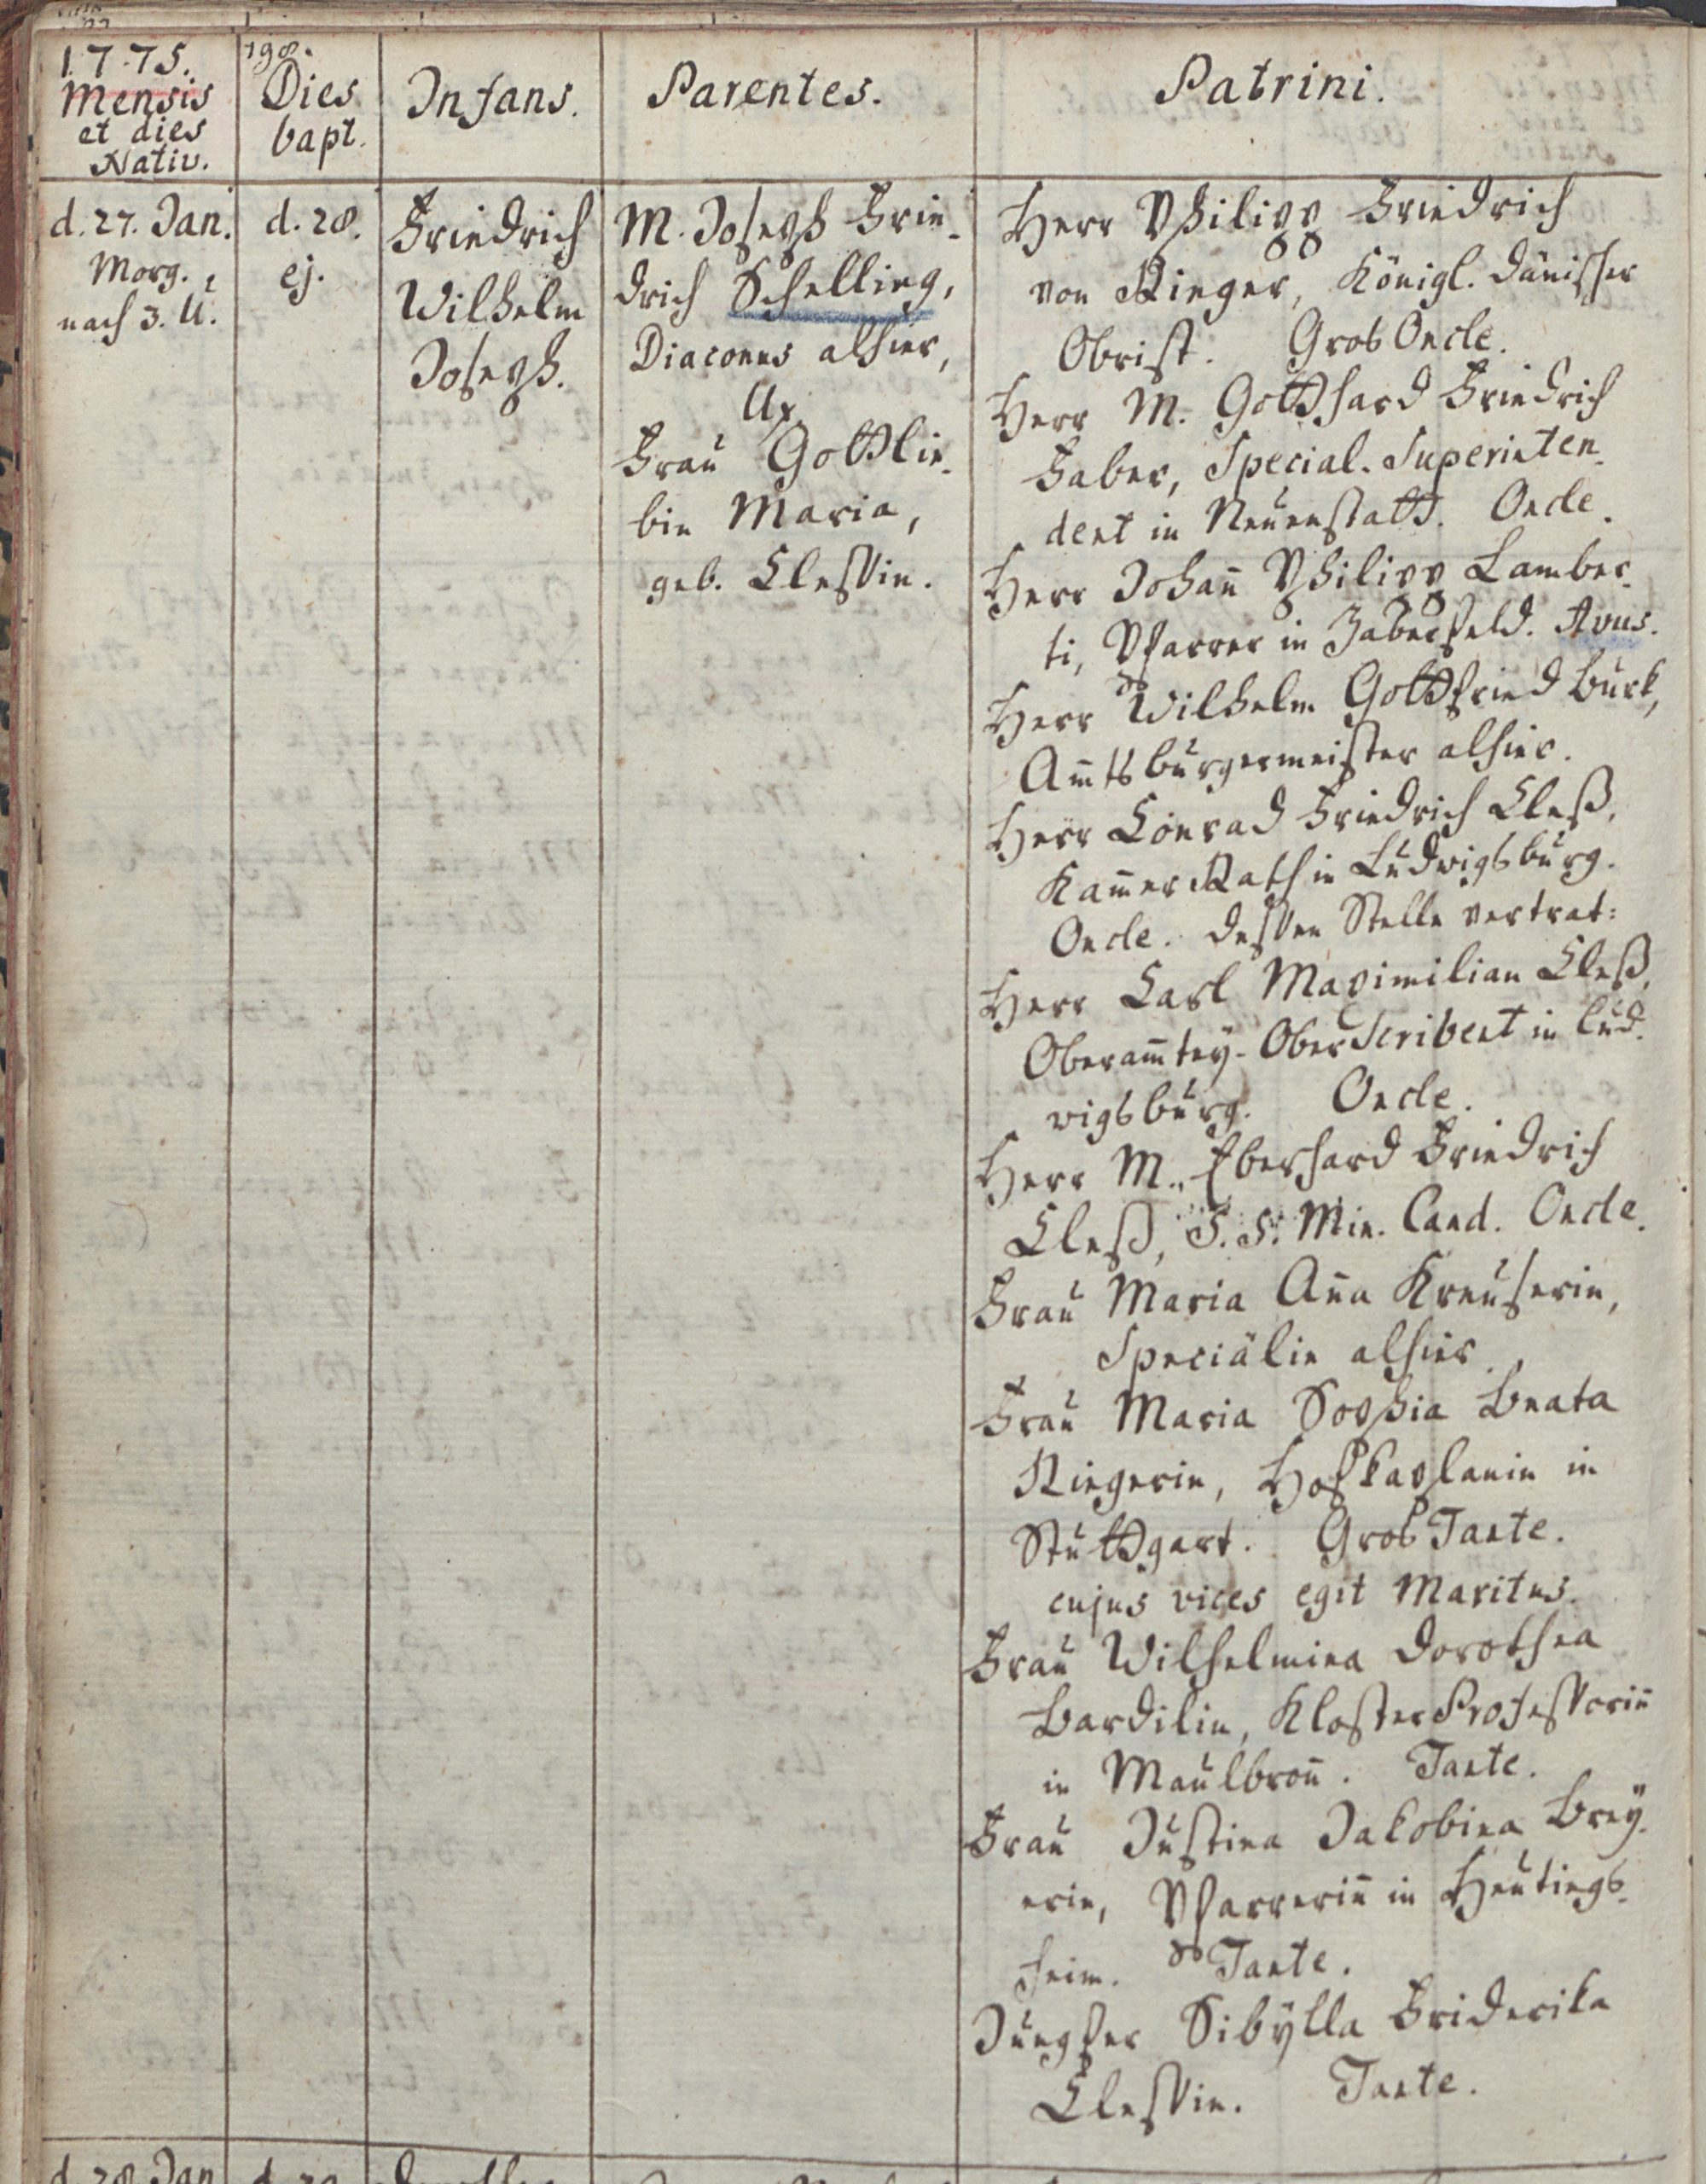 1775.
Mensis
et dies
Nativ.
198.
Dies
bapt.
Infans.
Parentes.
Patrini.
d. 27. Jan.
Morg.
nach 3. U.
d. 28.
ej.
Friedrich
Wilhelm
Joseph.
M. Joseph Frie-
drich Schelling,
Diaconus alhier,
Ux.
Frau Gottlie-
bin Maria,
geb. Clessin.
Herr Philipp Friedrich
von Rieger, Königl. Dänischer
Obrist. Groß Oncle.
Herr M. Gotthard Friedrich
Faber, Special-Superinten-
dent in Neuenstatt. Oncle.
Herr Johañ Philipp Lamber-
ti, Pfarrer in Zaberfeld. Avus.
Herr Wilhelm Gottfried Burk,
Am̃tsburgermeister alhier.
Herr Conrad Friedrich Cleß,
Kam̃er Rath in Ludwigsburg.
Oncle. dessen Stelle vertrat:
Herr Carl Maximilian Cleß,
Oberam̃tey-Ober Scribent in Lud-
wigsburg. Oncle.
Herr M. Eberhard Friedrich
Cleß, S. S. Min. Cand. Oncle.
Frau Maria Aña Kreuserin,
Speciälin alhier.
Frau Maria Sophia Beata
Riegerin, Hofkaplanin in
Stuttgart. Groß Tante.
cujus vices egit Maritus.
Frau Wilhelmina Dorothea
Bardilin, Kloster Professoriñ
in Maulbroñ. Tante.
Frau Justina Jakobina Brey-
erin, Pfarreriñ in Heutings-
heim. Tante.
Jungfer Sibylla Friderika
Clessin. Tante.
d. 28. Jan